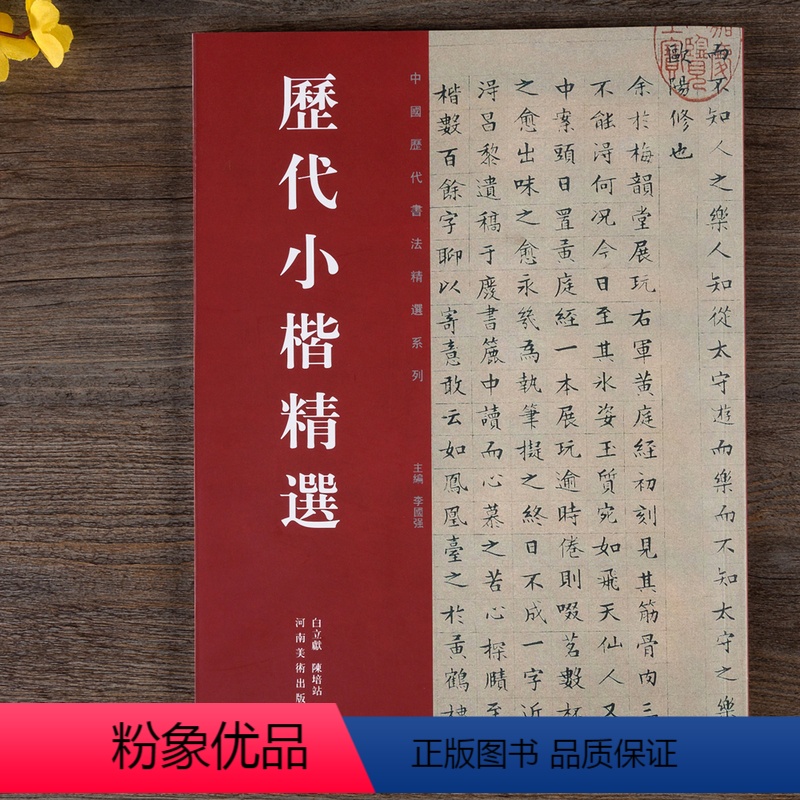 歷代小楷精選
中國歷代書法精選系列
主編 李國强
白立獻 陳培站
河南美術出版
而不知人之樂人知從太守遊而樂而不知太守之樂
歐陽修也
余於梅韻堂展玩右軍黃庭經初刻見其筋骨肉三
不能得何况今日至其氷姿玉質宛如飛天仙人又
中案頭日置黃庭經一本展玩逾時倦則啜茗數杯
之愈出味之愈永幾爲執筆擬之終日不成一字近
淂昌黎遺稿于廢書簏中讀而心慕之苦心探賾至
楷數百餘字聊以寄意敢云如鳳凰臺之於黃鶴樓
粉象优品
正版图书 品质保证